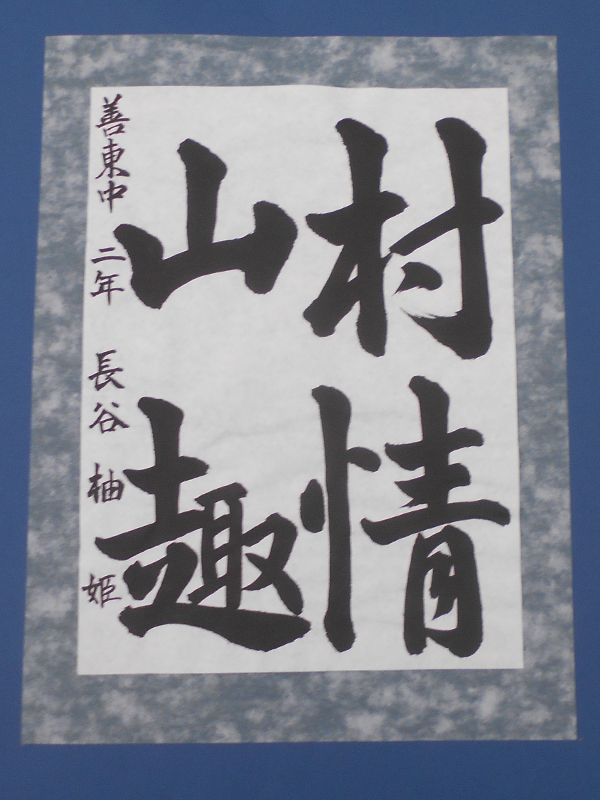 村情
山趣
善東中 二年 長谷 柚姫